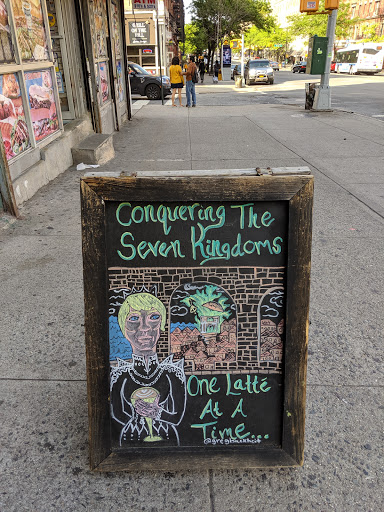 Conquering The
Seven Kingdoms
One Latté
At A
Time...